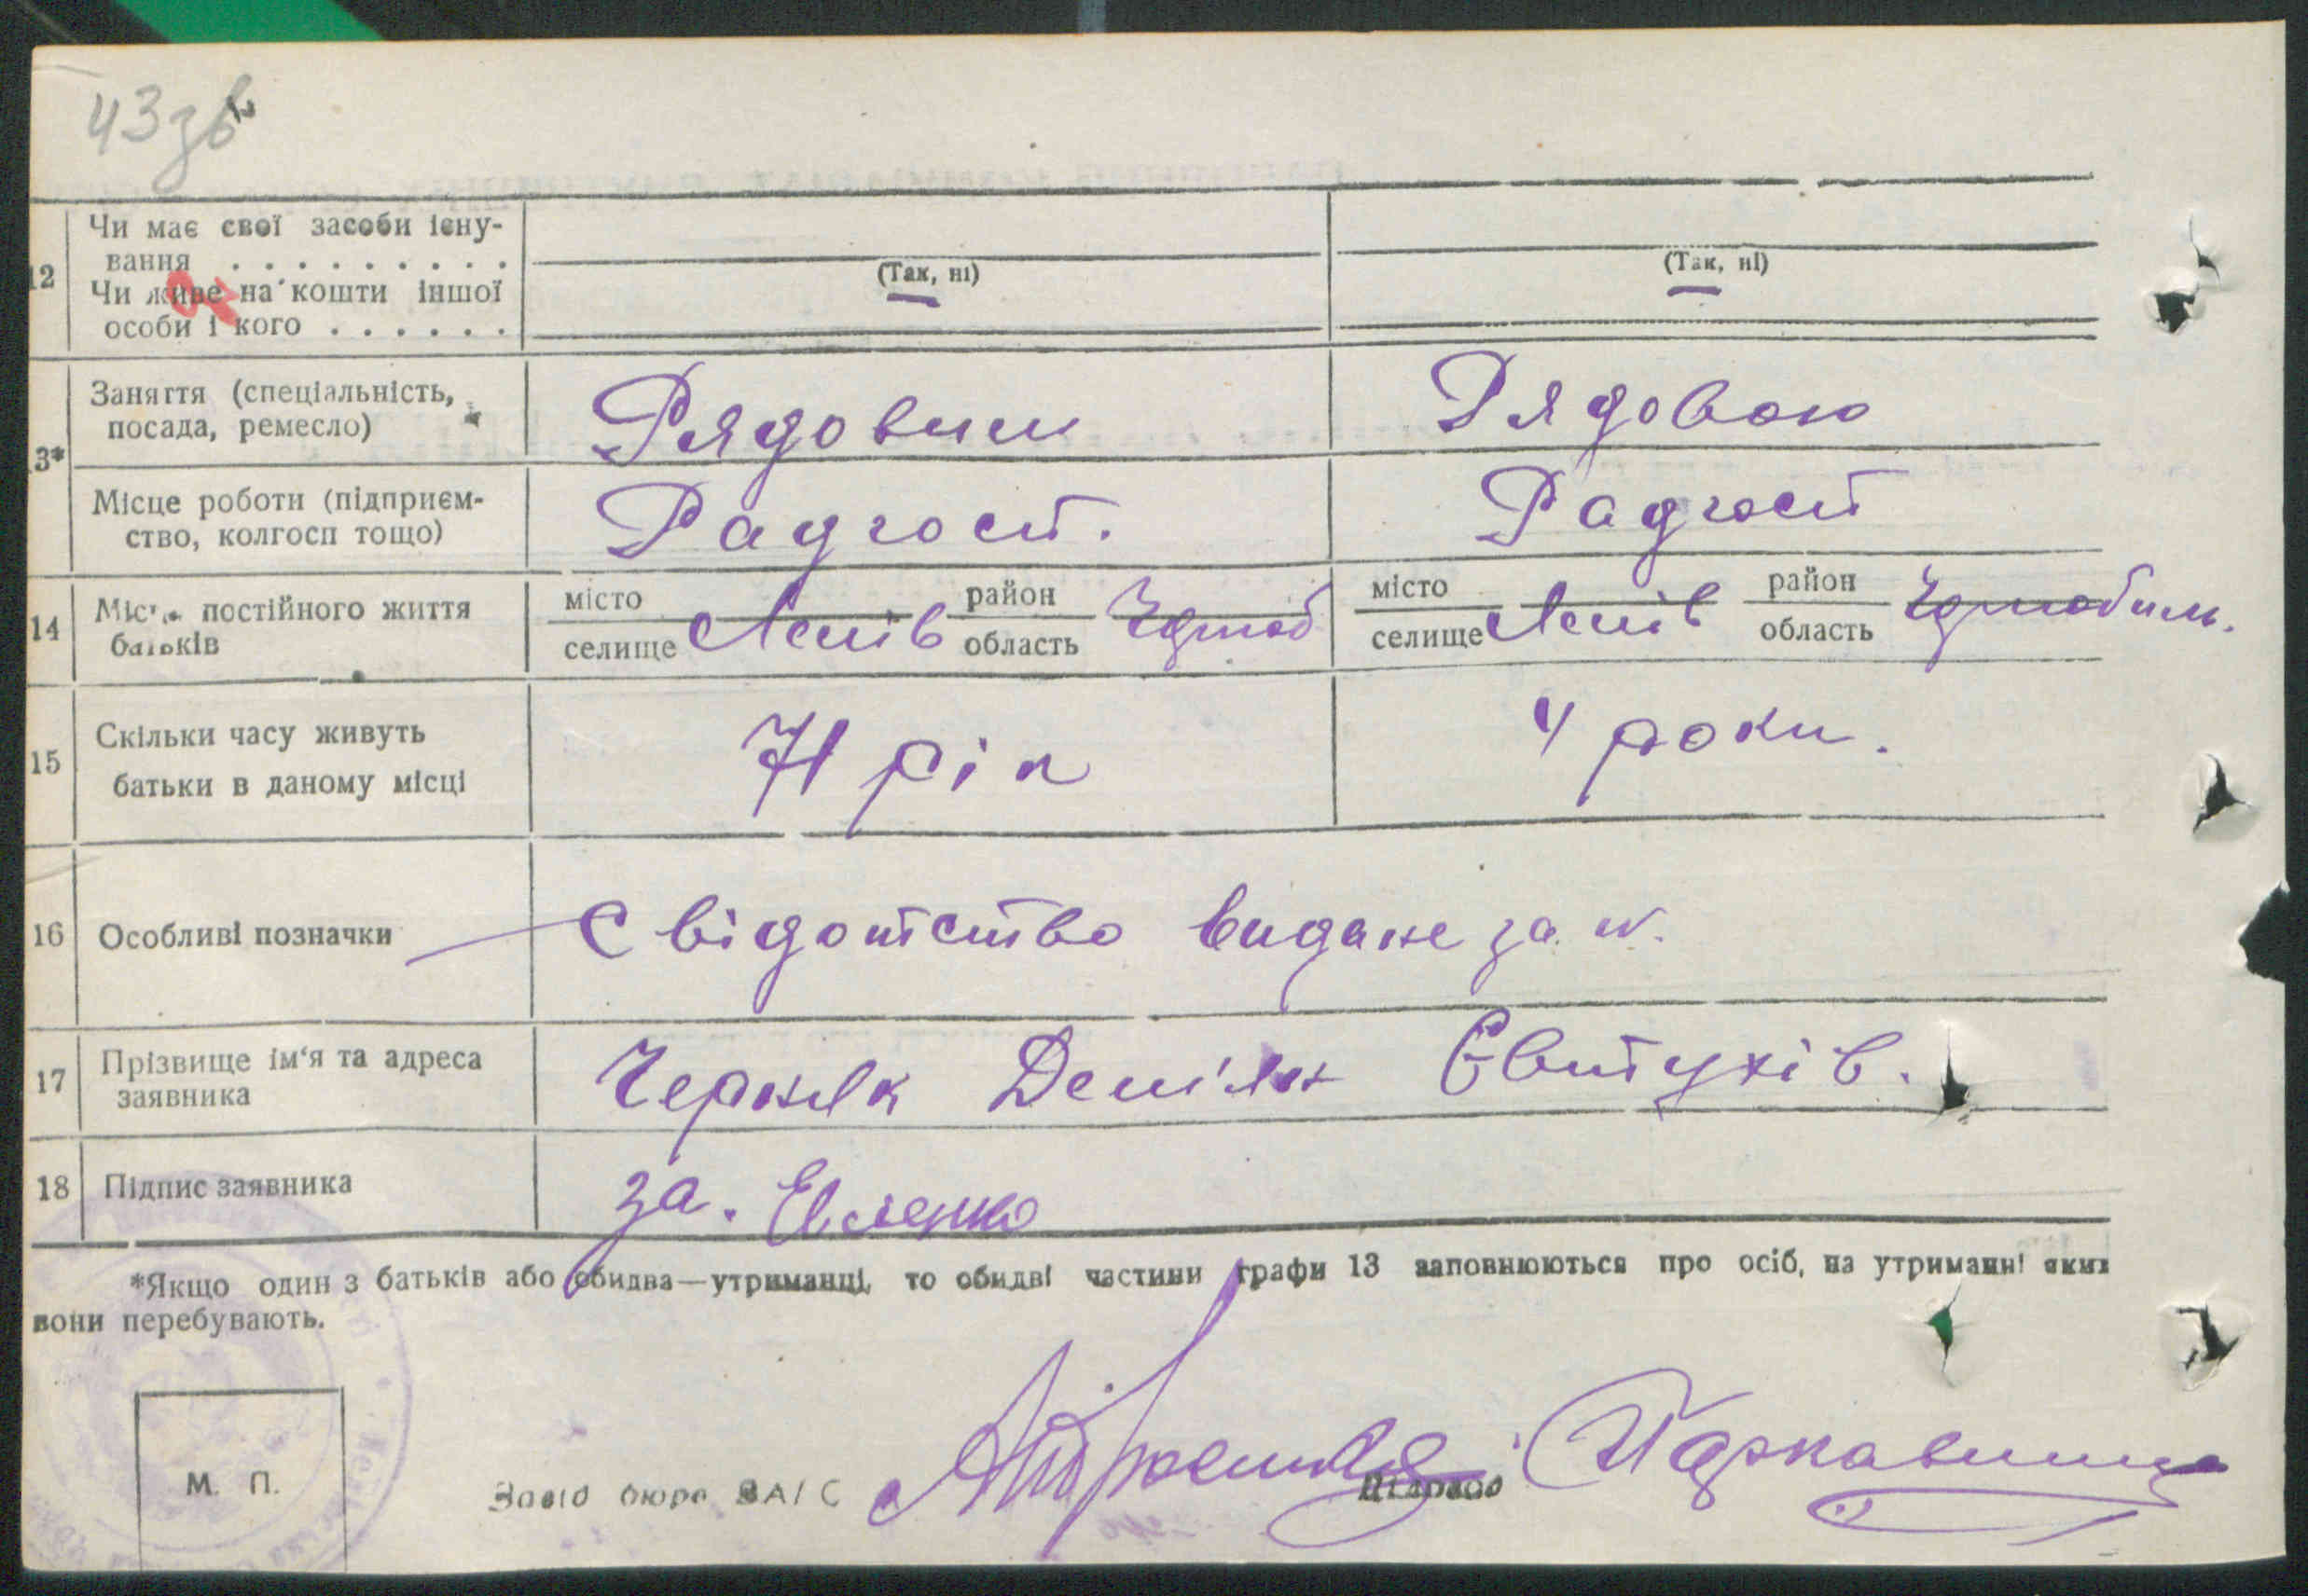 43 зв
12 Чи має свої засоби існу-
вання . . . . . . . . .
Чи живе на кошти іншої
особи і кого . . . . . .
(Так, ні) (Так, ні)
13* Заняття (спеціальність,
посада, ремесло)
Рядовим Рядовою
Місце роботи (підприєм-
ство, колгосп тощо)
Радгосп. Радгосп
14 Місце постійного життя
батьків
місто район місто район
селище область селище область
15 Скільки часу живуть
батьки в даному місці
71 рік 4 роки.
16 Особливі позначки Свідотство видане за №.
17 Прізвище ім'я та адреса
заявника
Черняк Дем'ян Євтухів.
18 Підпис заявника за.
*Якщо один з батьків або обидва—утриманці, то обидві частини графи 13 заповнюються про осіб, на утриманні яких
вони перебувають.
М. П.
Завід бюро ЗАГС Діловод